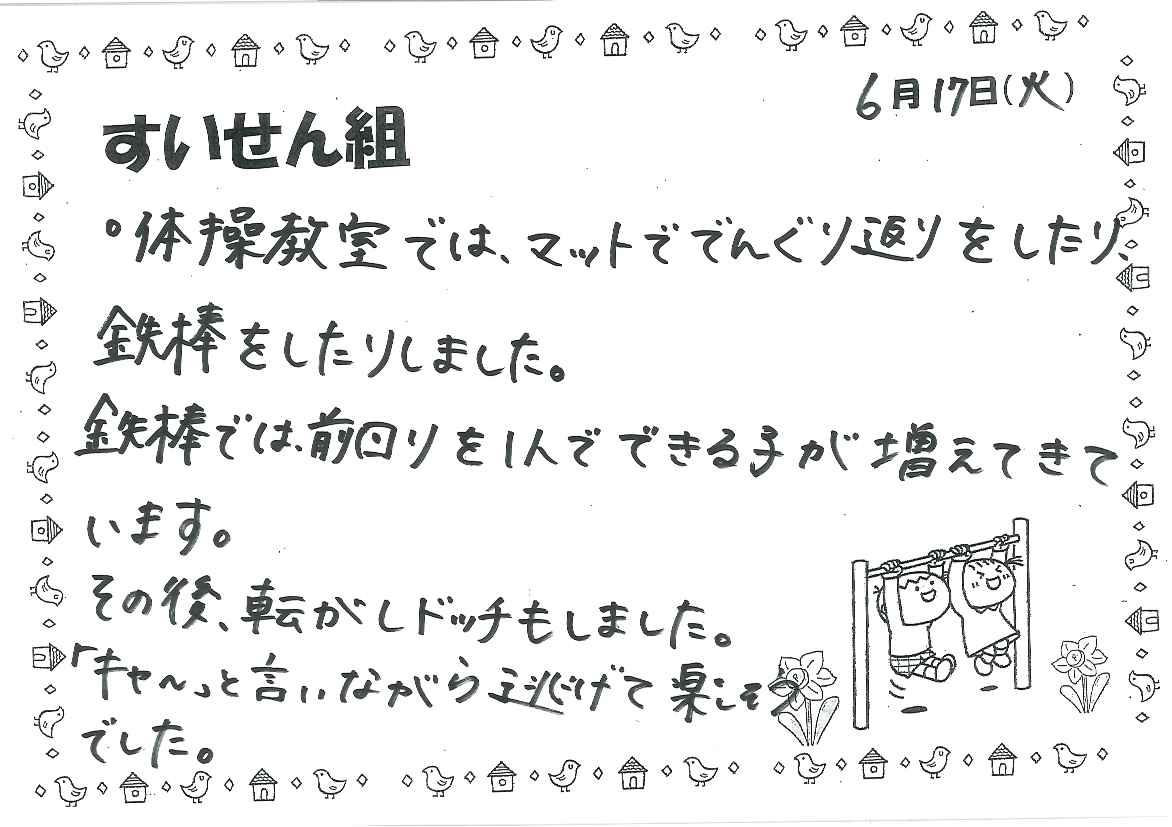 6月17日(火)
すいせん組
°体操教室では、マットででんぐり返りをしたり、
鉄棒をしたりしました。
鉄棒では、前回りを1人でできる子が増えてきて
います。
その後、転がしドッチもしました。
「キャ〜」と言いながら逃げて楽しそう
でした。